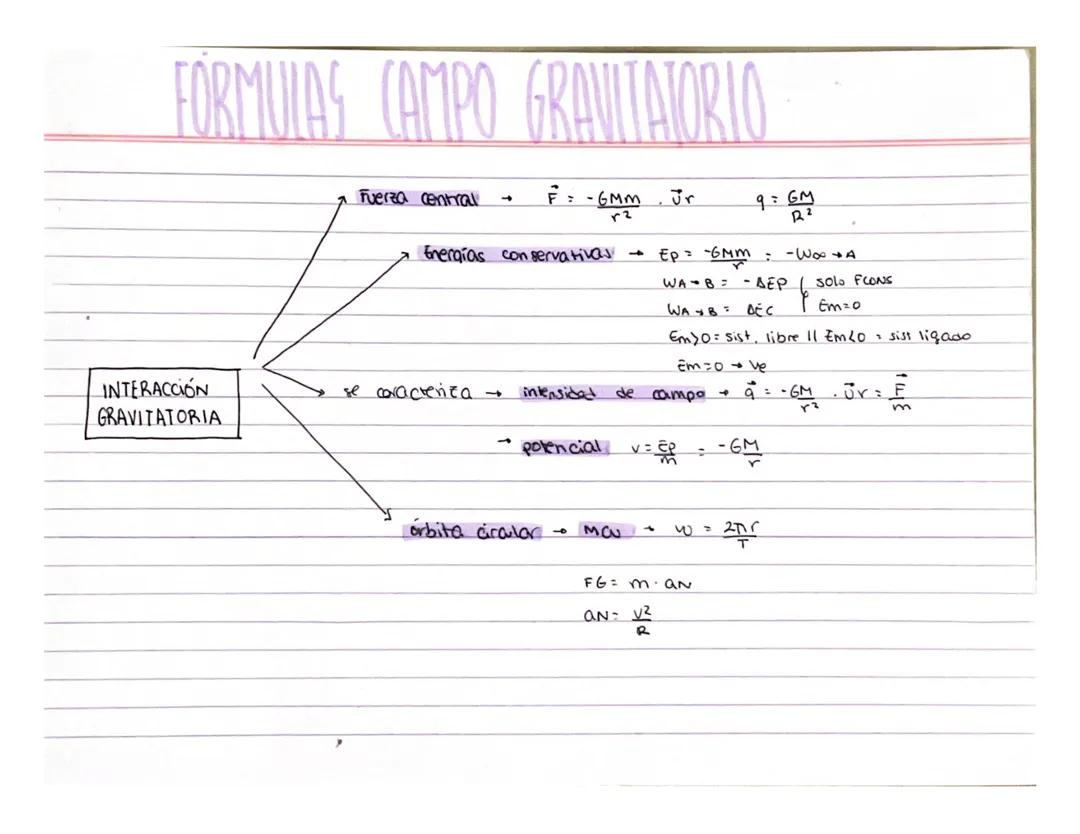 FÓRMULAS CAMPO GRAVITATORIO
Fuerza central → F⃗ = -GMm/r² . U⃗r g = GM/R²
Energías conservativas → Ep = -GMm/r = -W∞→A
WA→B = -ΔEP } solo FCONS
WA→B = ΔEC } Em=0
Em>0 = sist. libre || Em<0 = sist ligado
Em=0 → Ve
INTERACCIÓN
GRAVITATORIA
se caracteriza → intensidad de campo → g⃗ = -GM/r² . U⃗r = F⃗/m
→ potencial V = Ep/m = -GM/r
órbita circular → MCU → w = 2πr/T
FG = m · aN
aN = V²/R